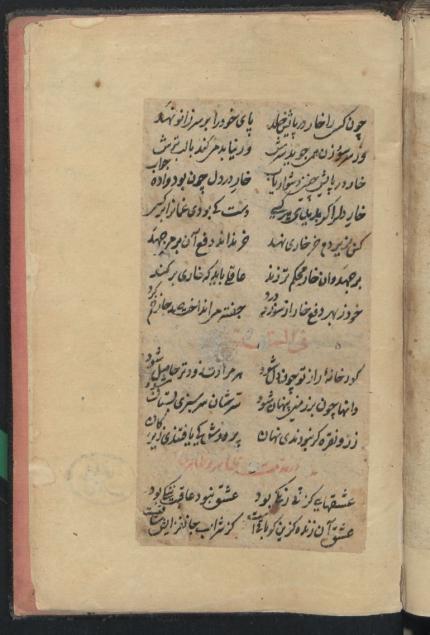 چون کسی را خار در پایش خلد پای خود را بر سر زانو نهد
وز سر سوزن همی جوید سرش ور نیابد می‌کند با لب ترش
خار در پا شد چنین دشوار یاب خار در دل چون بود وا ده جواب
خار دل را گر بدیدی هر کسی دست کی بودی غمان را بر کسی
کس بزیر دم خر خاری نهد خر نداند دفع آن بر می‌جهد
بر جهد وان خار محکم‌تر زند عاقلی باید که خاری بر کند
خر ز بهر دفع خار از سوز و درد جفته می‌انداخت صد جا زخم کرد
گورخانه راز تو چون دل شود هر مرادت زودتر حاصل شود
دانها چون در زمین پنهان شود سر سرسبزی بستان شود
زر و نقره گر نبودندی نهان پرورش کی یافتندی زیر کان
عشقهایی کز پی رنگی بود عشق نبود عاقبت ننگی بود
عشق آن زنده گزین کو باقیست کز شراب جان‌فزایت ساقیست